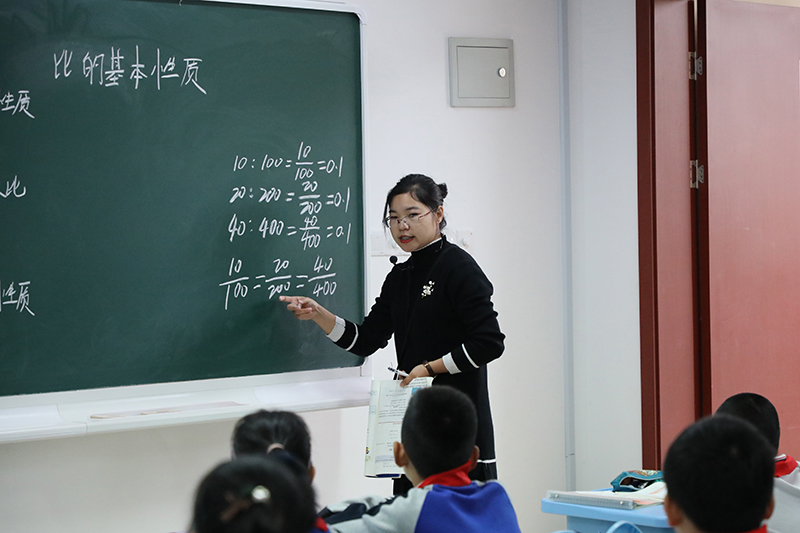 比的基本性质
性质
比
性质
10:100=10/100=0.1
20:200=20/200=0.1
40:400=40/400=0.1
10/100=20/200=40/400